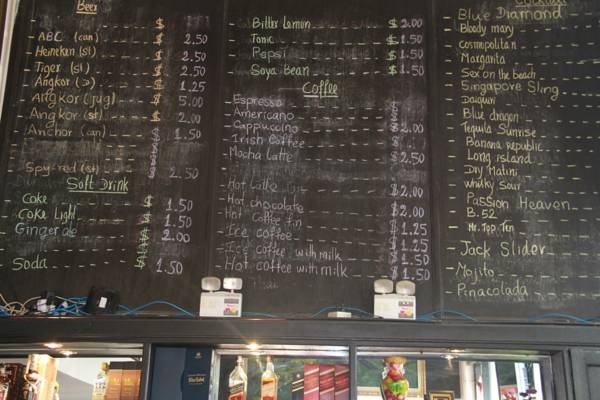 Beer
- ABC (can) $ 2.50
- Heineken (sl) $ 2.50
- Tiger (sl) $ 2.50
- Angkor (s) $ 1.25
- Angkor (jug) $ 5.00
- Angkor (st) $ 2.00
- Anchor (can) $ 1.50
- Spy-red (st) $ 2.50
Soft Drink
- Coke $ 1.50
- Coke Light $ 1.50
Ginger ale $ 2.00
Soda $ 1.50
- Bitter Lemon $ 2.00
- Tonic $ 1.50
- Pepsi $ 1.50
- Soya Bean $ 1.50
Coffee
- Espresso
- Americano
- Cappuccino $ 2.00
- Irish Coffee
- Mocha Latte $ 2.50
- Hot Latte $ 2.00
- Hot chocolate
- Hot Coffee fin $ 2.00
- Ice coffee $ 1.25
- Ice coffee with milk $ 1.25
- Hot coffee with milk $ 1.50
Cocktail
- Blue Diamond
- Bloody mary
- cosmopolitan
- Margarita
- Sex on the beach
- Singapore Sling
- Daiquiri
- Blue dragon
- Tequila Sunrise
- Banana republic
- Long island
- Dry Matini
- whisky Sour
- Passion Heaven
- B.52
- Mr. Top Ten
- Jack Slider
- Mojito
- Pinacolada